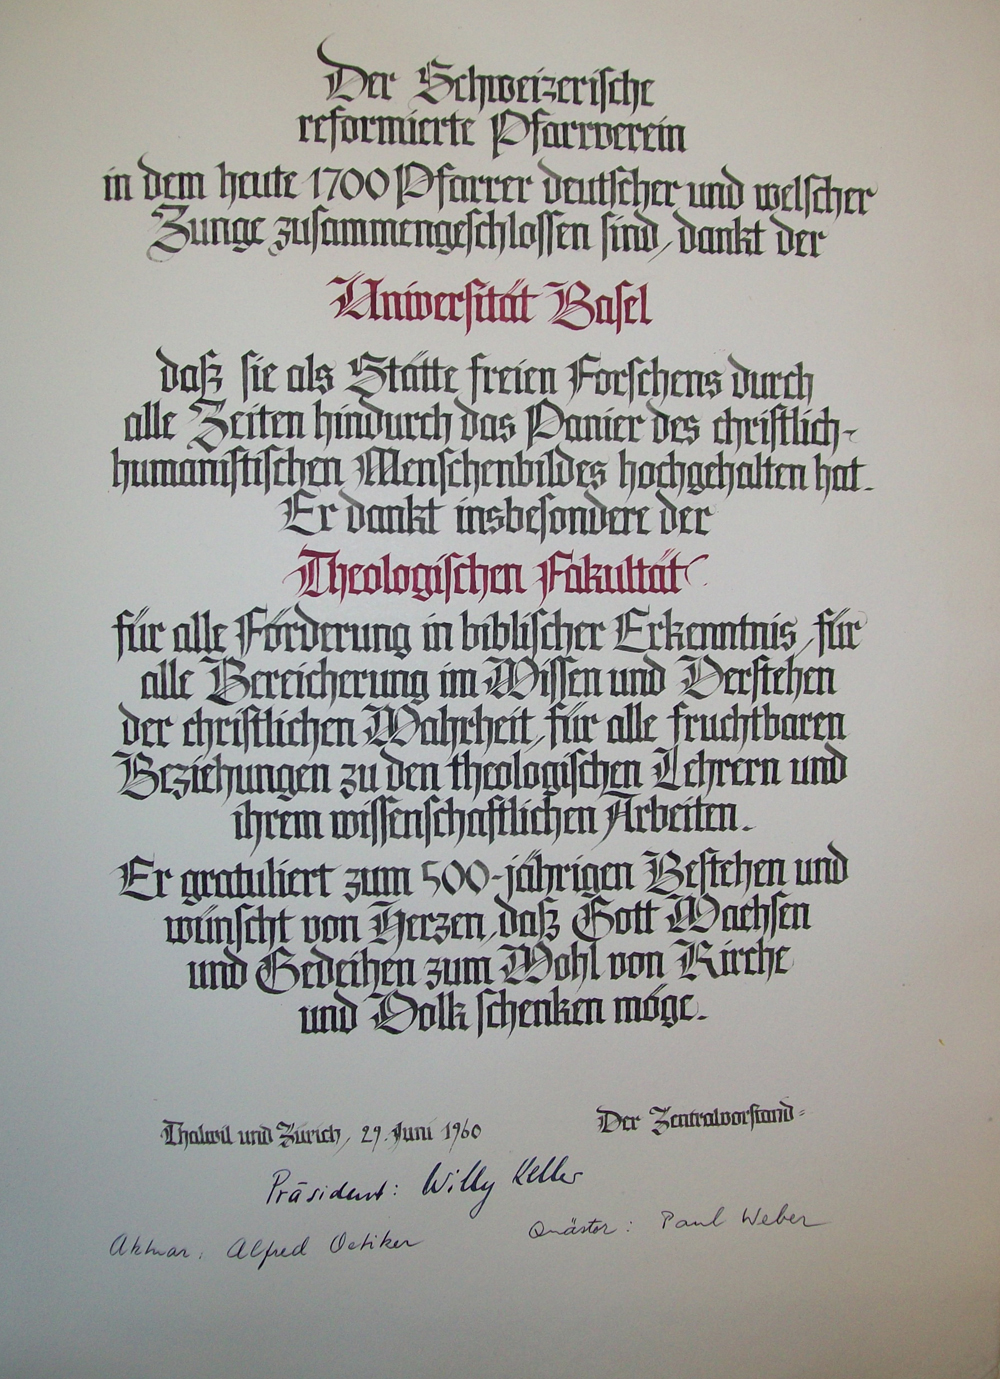 Der Schweizerische
reformierte Pfarrverein
in dem heute 1700 Pfarrer deutscher und welscher
Zunge zusammengeschlossen sind, dankt der
Universität Basel
daß sie als Stätte freien Forschens durch
alle Zeiten hindurch das Panier des christlich-
humanistischen Menschenbildes hochgehalten hat.
Er dankt insbesondere der
Theologischen Fakultät
für alle Förderung in biblischer Erkenntnis, für
alle Bereicherung im Wissen und Verstehen
der christlichen Wahrheit, für alle fruchtbaren
Beziehungen zu den theologischen Lehrern und
ihrem wissenschaftlichen Arbeiten.
Er gratuliert zum 500-jährigen Bestehen und
wünscht von Herzen, daß Gott Wachsen
und Gedeihen zum Wohl von Kirche
und Volk schenken möge.
Thalwil und Zürich, 29. Juni 1960
Der Zentralvorstand:
Präsident: Willy Keller
Aktuar: Alfred Oetiker
Quästor: Paul Weber